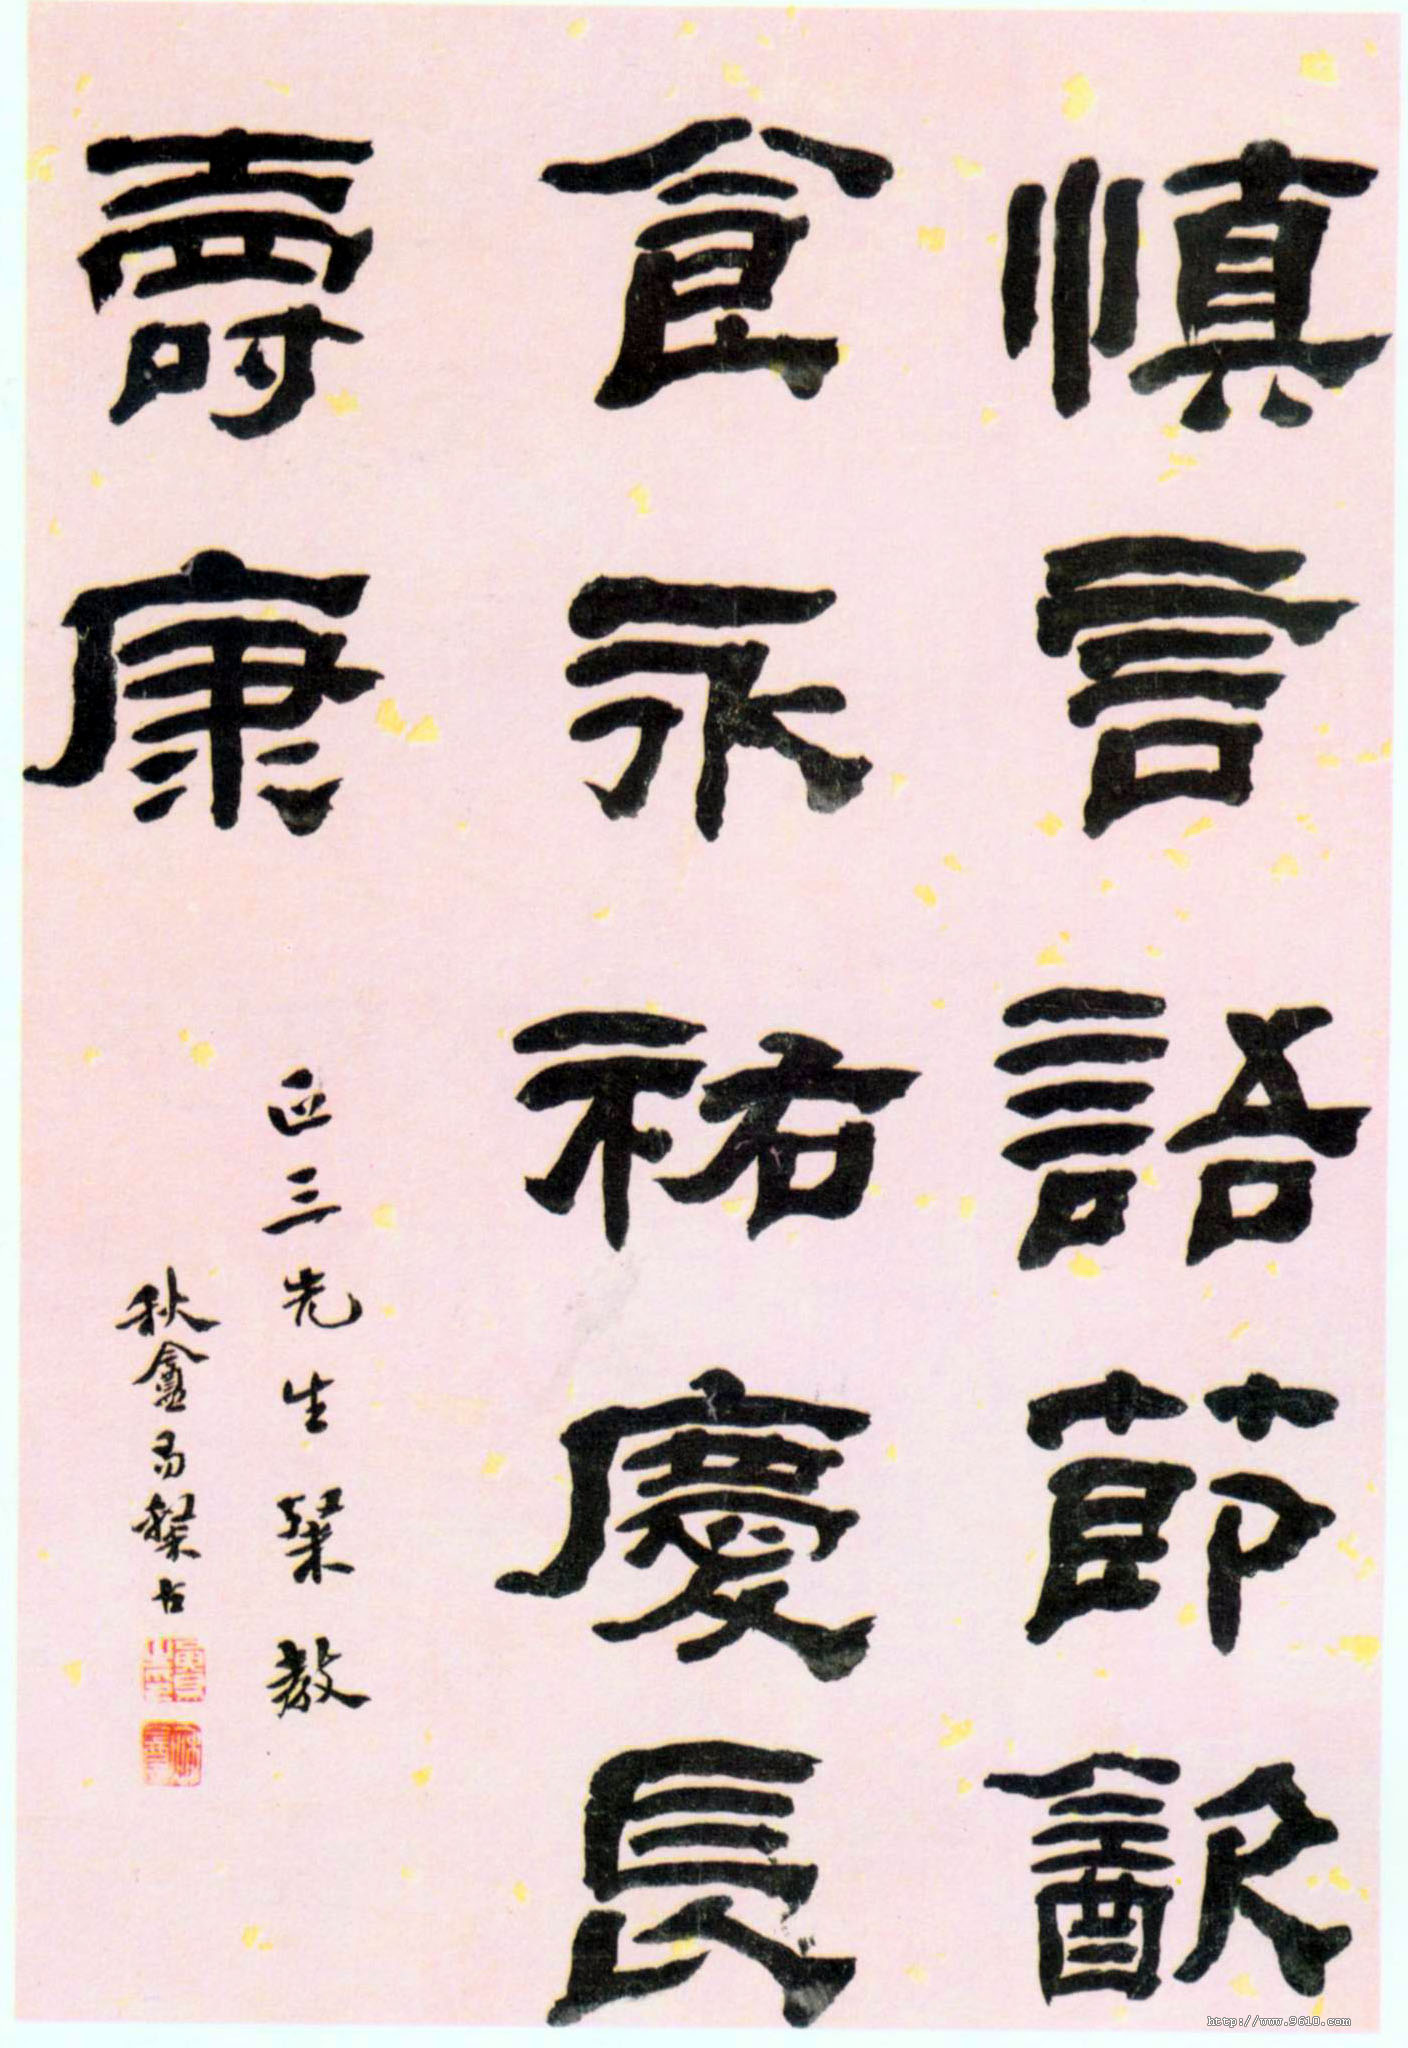 慎言語節㱃
食永祐慶長
壽康
正三先生榘教
秋盦易
http://www.9610.com